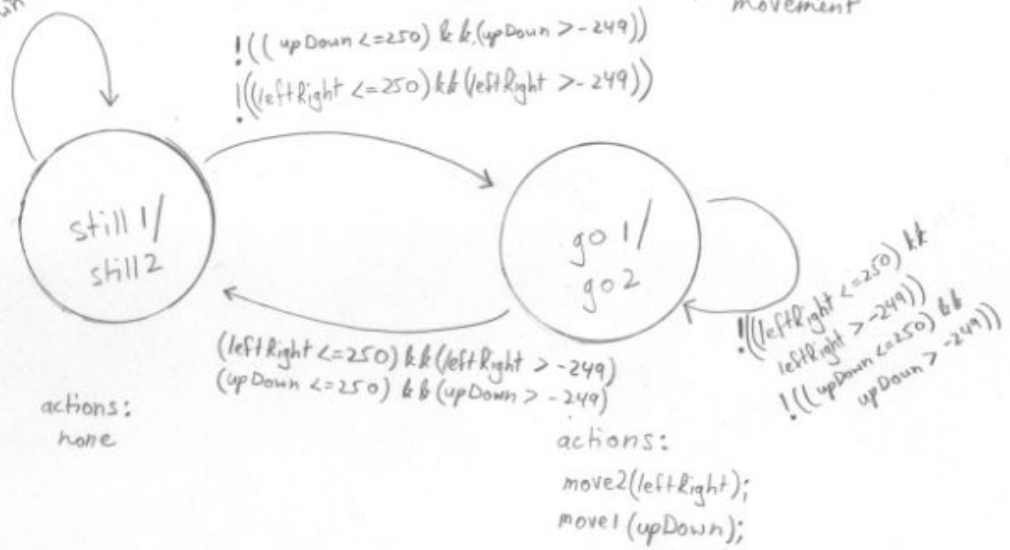 movement
!((upDown <=250) && (upDown >-249))
!((leftRight <=250) && (leftRight >-249))
still 1/
still 2
go 1/
go 2
!((leftRight <=250) &&
leftRight >-249))
!((upDown <=250) &&
upDown > -249))
(leftRight <=250) && (leftRight > -249)
(upDown <=250) && (upDown > -249)
actions:
none
actions:
move2(leftRight);
move1(upDown);